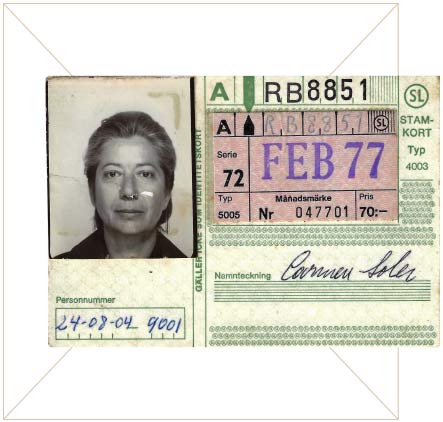 A RB8851
SL
STAM-
KORT
Typ
4003
A RB8851 SL
Serie
72
FEB 77
Typ
5005
Månadsmärke
Nr 047701
Pris
70:-
GÄLLER ICKE SOM IDENTITETSKORT
Namnteckning Carmen Soler
Personnummer
24-08-04 9001